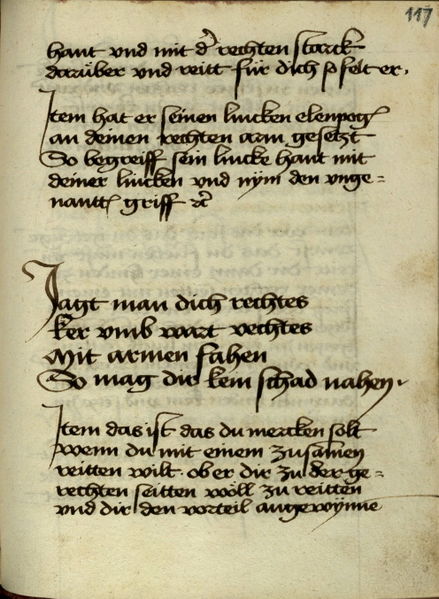 117
hant vnd mit dr̃ rechten starck
darüber vnd reitt für dich so felt er ·
Item hat er seinen lincken elenpogñ
an deinen rechten arm gesetzt
So begreiff sein lincke hant mit
deiner lincken vnd nÿm den vnge=
nantñ griff ꝛc̃
Jagt man dich rechtes
ker vmb wart vechtes
Mit armen fahen
So mag dir kein schad nahen ·
Item das ist das du mercken solt
wenn du mit einem zusamen
reitten wilt · ob er dir zu der ge=
rechten seitten wöll zu reitten
vnd dir den vorteil angewÿnne